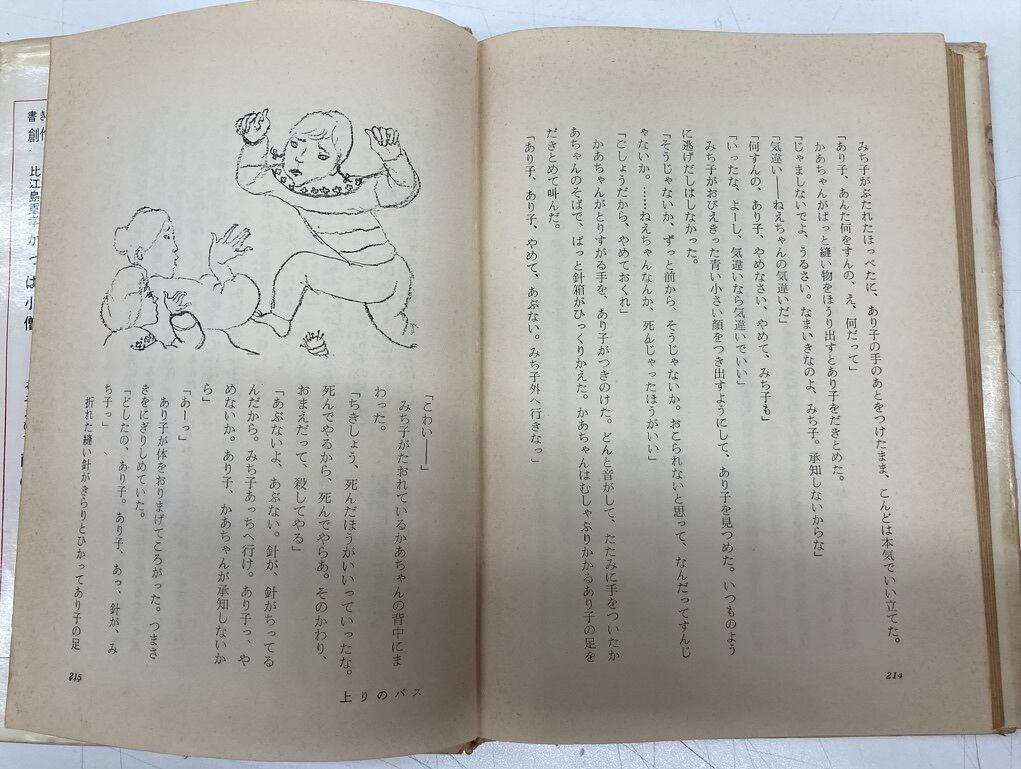 みち子がぶたれたほっぺたに、あり子の手のあとをつけたまま、こんどは本気でいい立てた。
「あり子、あんた何をすんの、え、何だって」
かあちゃんがぱっと縫い物をほうり出すとあり子をだきとめた。
「じゃましないでよ、うるさい。なまいきなのよ、みち子。承知しないからな」
「気違い――ねえちゃんの気違いだ」
「何すんの、あり子、やめなさい、やめて、みち子も」
「いったな、よーし、気違いなら気違いでいい」
みち子がおびえきった青い小さい顔をつき出すようにして、あり子を見つめた。いつものよう
に逃げだしはしなかった。
「そうじゃないか、ずっと前から、そうじゃないか。おこられないと思って、なんだってすんじ
ゃないか。……ねえちゃんなんか、死んじゃったほうがいい」
「ごしょうだから、やめておくれ」
かあちゃんがとりすがる手を、あり子がつきのけた。どんと音がして、たたみに手をついたか
あちゃんのそばで、ぱっと針箱がひっくりかえた。かあちゃんはむしゃぶりかかるあり子の足を
だきとめて叫んだ。
「あり子、あり子、やめて、あぶない。みち子外へ行きなっ」
214
「こわい――」
みち子がたおれているかあちゃんの背中にま
わった。
「ちきしょう、死んだほうがいいっていったな。
死んでやるから、死んでやらあ。そのかわり、
おまえだって、殺してやる」
「あぶないよ、あぶない。針が、針がちってる
んだから。みち子あっちへ行け。あり子っ、や
めないか。あり子、かあちゃんが承知しないか
ら」
「あーっ」
あり子が体をおりまげてころがった。つまさ
きをにぎりしめていた。
「どしたの、あり子。あり子、あっ、針が、み
ち子っ」
折れた縫い針がきらりとひかってあり子の足
上りのバス
215
比江島重孝
かっぱ小僧